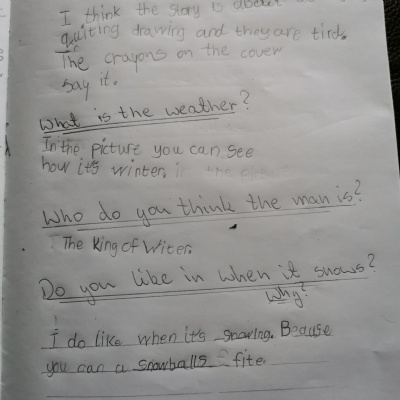 I think the story is about
quiting drawing and they are tird.
The crayons on the cover
say it.
What is the weather?
In the picture you can see
how it's winter. in the
Who do you think the man is?
The King of Witer.
Do you like in when it snows?
Why?
I do like when it's snowing. Beause
you can a snowballs fite.